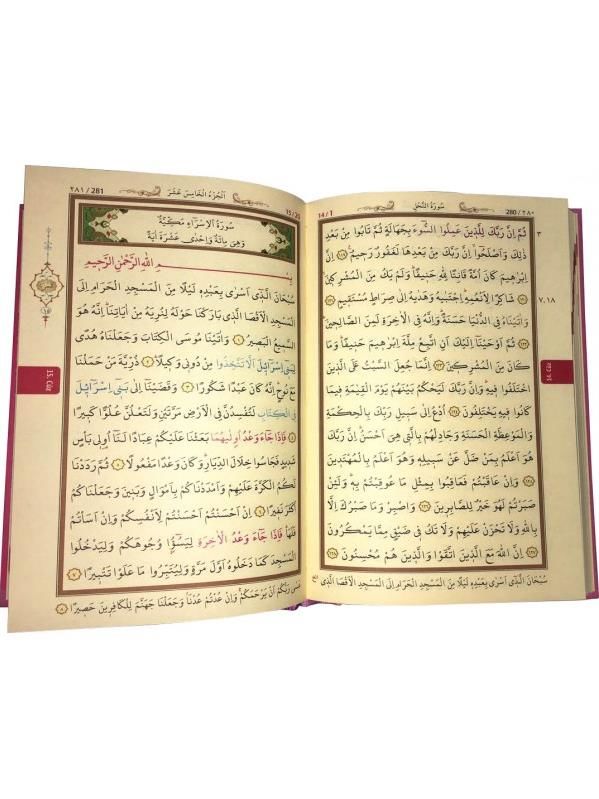 ٢٨٠ / 280
سُورَةُ النَّحْلِ
14/1
ثُمَّ اِنَّ رَبَّكَ لِلَّذٖينَ عَمِلُوا السُّٓوءَ بِجَهَالَةٍ ثُمَّ تَابُوا مِنْ بَعْدِ
ذٰلِكَ وَاَصْلَحُٓوا اِنَّ رَبَّكَ مِنْ بَعْدِهَا لَغَفُورٌ رَحٖيمٌ ﴿١١٩﴾ اِنَّ
اِبْرٰهٖيمَ كَانَ اُمَّةً قَانِتًا لِلّٰهِ حَنٖيفًا وَلَمْ يَكُ مِنَ الْمُشْرِكٖينَ
﴿١٢٠﴾ شَاكِرًا لِاَنْعُمِهِ اِجْتَبٰيهُ وَهَدٰيهُ اِلٰى صِرَاطٍ مُسْتَقٖيمٍ ﴿١٢١﴾
وَاٰتَيْنَاهُ فِي الدُّنْيَا حَسَنَةً وَاِنَّهُ فِي الْاٰخِرَةِ لَمِنَ الصَّالِحٖينَ
﴿١٢٢﴾ ثُمَّ اَوْحَيْنَٓا اِلَيْكَ اَنِ اتَّبِعْ مِلَّةَ اِبْرٰهٖيمَ حَنٖيفًا وَمَا
كَانَ مِنَ الْمُشْرِكٖينَ ﴿١٢٣﴾ اِنَّمَا جُعِلَ السَّبْتُ عَلَى الَّذٖينَ
اخْتَلَفُوا فٖيهِ وَاِنَّ رَبَّكَ لَيَحْكُمُ بَيْنَهُمْ يَوْمَ الْقِيٰمَةِ فٖيمَا
كَانُوا فٖيهِ يَخْتَلِفُونَ ﴿١٢٤﴾ اُدْعُ اِلٰى سَبٖيلِ رَبِّكَ بِالْحِكْمَةِ
وَالْمَوْعِظَةِ الْحَسَنَةِ وَجَادِلْهُمْ بِالَّتٖي هِيَ اَحْسَنُ اِنَّ رَبَّكَ
هُوَ اَعْلَمُ بِمَنْ ضَلَّ عَنْ سَبٖيلِهٖ وَهُوَ اَعْلَمُ بِالْمُهْتَدٖينَ
﴿١٢٥﴾ وَاِنْ عَاقَبْتُمْ فَعَاقِبُوا بِمِثْلِ مَا عُوقِبْتُمْ بِهٖ وَلَئِنْ
صَبَرْتُمْ لَهُوَ خَيْرٌ لِلصَّابِرٖينَ ﴿١٢٦﴾ وَاصْبِرْ وَمَا صَبْرُكَ اِلَّا
بِاللّٰهِ وَلَا تَحْزَنْ عَلَيْهِمْ وَلَا تَكُ فٖي ضَيْقٍ مِمَّا يَمْكُرُونَ
﴿١٢٧﴾ اِنَّ اللّٰهَ مَعَ الَّذٖينَ اتَّقَوْا وَالَّذٖينَ هُمْ مُحْسِنُونَ ﴿١٢٨﴾
سُبْحَانَ الَّذٖٓي اَسْرٰى بِعَبْدِهٖ لَيْلًا مِنَ الْمَسْجِدِ الْحَرَامِ اِلَى الْمَسْجِدِ الْاَقْصَا الَّذٖي
٣
٧،١٨
14. Cüz
15/20
اَلْجُزْءُ الْخَامِسَ عَشَرَ
٢٨١ / 281
سُورَةُ الْاِسْرَٓاءِ مَكِّيَّةٌ
وَهِيَ مِائَةٌ وَاِحْدٰى عَشْرَةَ اٰيَةً
بِسْمِ اللّٰهِ الرَّحْمٰنِ الرَّحٖيمِ
سُبْحَانَ الَّذٖٓي اَسْرٰى بِعَبْدِهٖ لَيْلًا مِنَ الْمَسْجِدِ الْحَرَامِ اِلَى
الْمَسْجِدِ الْاَقْصَا الَّذٖي بَارَكْنَا حَوْلَهُ لِنُرِيَهُ مِنْ اٰيَاتِنَا اِنَّهُ هُوَ
السَّمٖيعُ الْبَصٖيرُ ﴿١﴾ وَاٰتَيْنَا مُوسَى الْكِتَابَ وَجَعَلْنَاهُ هُدًى
لِبَنٖٓي اِسْرَٓائٖلَ اَلَّا تَتَّخِذُوا مِنْ دُونٖي وَكٖيلًا ﴿٢﴾ ذُرِّيَّةَ مَنْ حَمَلْنَا
مَعَ نُوحٍ اِنَّهُ كَانَ عَبْدًا شَكُورًا ﴿٣﴾ وَقَضَيْنَٓا اِلٰى بَنٖٓي اِسْرَٓائٖلَ
فِي الْكِتَابِ لَتُفْسِدُنَّ فِي الْاَرْضِ مَرَّتَيْنِ وَلَتَعْلُنَّ عُلُوًّا كَبٖيرًا
﴿٤﴾ فَاِذَا جَٓاءَ وَعْدُ اُولٰيهُمَا بَعَثْنَا عَلَيْكُمْ عِبَادًا لَنَٓا اُولٖي بَأْسٍ
شَدٖيدٍ فَجَاسُوا خِلَالَ الدِّيَارِ وَكَانَ وَعْدًا مَفْعُولًا ﴿٥﴾ ثُمَّ رَدَدْنَا
لَكُمُ الْكَرَّةَ عَلَيْهِمْ وَاَمْدَدْنَاكُمْ بِاَمْوَالٍ وَبَنٖينَ وَجَعَلْنَاكُمْ
اَكْثَرَ نَفٖيرًا ﴿٦﴾ اِنْ اَحْسَنْتُمْ اَحْسَنْتُمْ لِاَنْفُسِكُمْ وَاِنْ اَسَأْتُمْ
فَلَهَا فَاِذَا جَٓاءَ وَعْدُ الْاٰخِرَةِ لِيَسُٓؤُا وُجُوهَكُمْ وَلِيَدْخُلُوا
الْمَسْجِدَ كَمَا دَخَلُوهُ اَوَّلَ مَرَّةٍ وَلِيُتَبِّرُوا مَا عَلَوْا تَتْبٖيرًا ﴿٧﴾
عَسٰى رَبُّكُمْ اَنْ يَرْحَمَكُمْ وَاِنْ عُدْتُمْ عُدْنَا وَجَعَلْنَا جَهَنَّمَ لِلْكَافِرٖينَ حَصٖيرًا ﴿٨﴾
15. Cüz